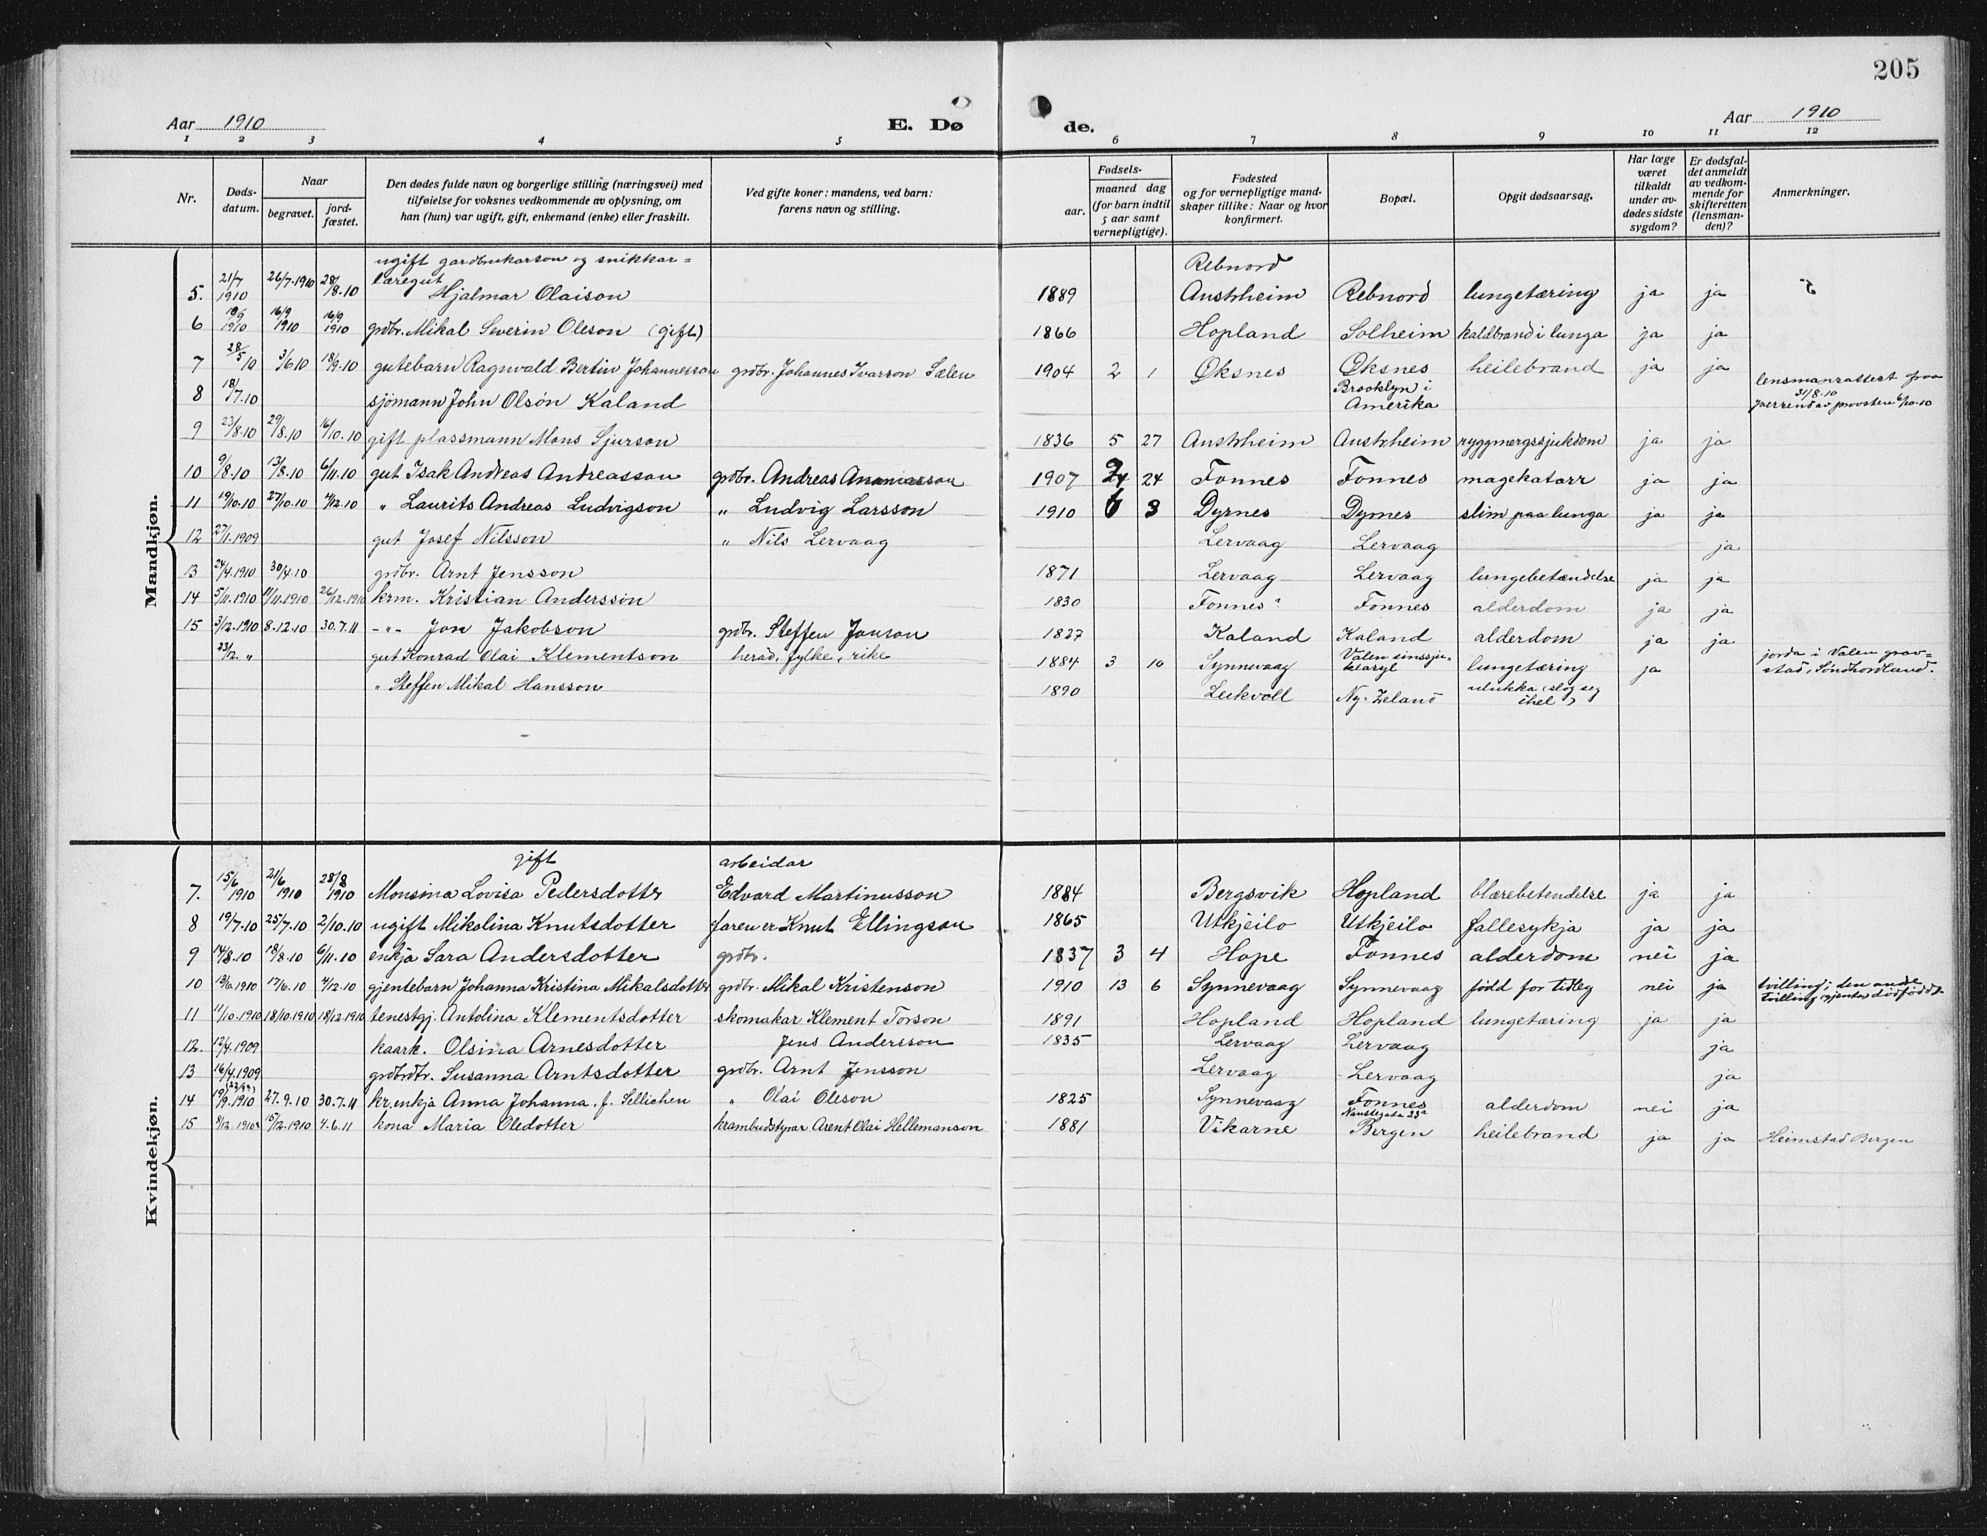 205
Aar 1910
E. Dø
de.
Aar 1910
1 2 3 4 5 6 7 8 9 10 11 12
Nr.
Døds-
datum.
Naar
begravet.
jord-
fæstet.
Den dødes fulde navn og borgerlige stilling (næringsvei) med
tilføielse for voksnes vedkommende av oplysning, om
han (hun) var ugift, gift, enkemand (enke) eller fraskilt.
Ved gifte koner: mandens, ved barn:
farens navn og stilling.
Fødsels-
aar.
maaned dag
(for barn indtil
5 aar samt
vernepligtige).
Fødested
og for vernepligtige mand-
skaper tillike: Naar og hvor
konfirmert.
Bopæl.
Opgit dødsaarsag.
Har læge
været
tilkaldt
under av-
dødes sidste
sygdom?
Er dødsfal-
det anmeldt
av vedkom-
mende for
skifteretten
(lensman-
den)?
Anmerkninger.
Mandkjøn.
ugift gardbrukarson og snikkar= Rebnord
5. 21/7 1910 26/7.1910 28/8.10 læregut Hjalmar Olaison 1889 Austrheim Rebnord lungetæring ja ja
6 1910 16/9 1910 16/9 1910 grdbr. Mikal Severin Oleson (gift) 1866 Hopland Solheim kaldbrand i lunga ja ja
7 28/5 10 3/6 10 18/9.10 gutebarn Ragnvald Bertin Johannesson grdbr. Johannes Ivarson Sælen 1904 2 1 Øksnes Øksnes heilebrand ja ja
8 18/7.10 sjömann John Olson Kaland Brooklyn i Amerika lensmansattest 31/8.10
9 23/8.10 29/8.10 16/10.10 gift plassmann Mons Sjurson 1836 5 27 Austrheim Austrheim ryggmergssjukdom ja ja
10 9/8.10 13/8.10 6/11.10 gut Isak Andreas Andreasson grdbr. Andreas Ananiasson 1907 24 Fonnes Fonnes magekatarr ja ja
11 19/10.10 27/10.10 4/12.10 " Laurits Andreas Ludvigson " Ludvig Larsson 1910 6 3 Dyrnes Dyrnes slim paa lunga ja ja
12 27/1.1909 gut Josef Nilsson " Nils Lervaag Lervaag Lervaag ja
13 24/4.1910 30/4.10 grdbr. Arnt Jensson 1871 Lervaag Lervaag lungebetændelse ja ja
14 5/11.1910 11/11.1910 26/12.1910 krm. Kristian Andersson 1830 Fonnes Fonnes alderdom ja ja
15 3/12.1910 8.12.10 30.7.11 -"- Jon Jakobson grdbr. Steffen Jonson 1827 Kaland Kaland alderdom ja ja
23/12. " gut Konrad Olai Klementson herad, fylke, rike 1884 3 10 Synnevaag Valen sinssju- lungetæring ja jorda i Valen grav=
stad, Söndhordland.
" Steffen Mikal Hansson 1890 Leikvoll Ny-Zeland ulukka (slog seg
ihel)
Kvindekjøn.
gift arbeidar
7. 15/6 1910 21/6 1910 28/8 1910 Monsina Lovisa Pedersdotter Edvard Martinusson 1884 Bergsvik Hopland blærebetendelse ja ja
8 19/7.10 25/7.10 2/10.10 ugift Mikolina Knutsdotter faren er Knut Ellingson 1865 Utkjeilo Utkjeilo fallesykja ja ja
9 14/8.10 18/8.10 6/11.10 enkja Sara Andersdotter grdbr. 1837 3 4 Hope Fonnes alderdom nei ja
10 13/6.1910 17/6.10 4/12.10 gjentebarn Johanna Kristina Mikalsdotter grdbr. Mikal Kristenson 1910 13 6 Synnevaag Synnevaag född for tidleg nei ja tvilling; den andre
tvilling, gjenta, dödfödd.
11 11/10.1910 18/10.1910 18/12.1910 tenestgj. Antolina Klementsdotter skomakar Klement Torson 1891 Hopland Hopland lungetæring ja ja
12. 12/4.1909 kaark. Olsina Arnesdotter Jens Andersson 1835 Lervaag Lervaag ja
13 16/4.1909 grdbrdtr. Susanna Arntsdotter grdbr. Arnt Jensson Lervaag Lervaag ja
14 19/9.1910 27.9.10 30.7.11 kr.enkja Anna Johanna f. Sellichen " Olai Oleson 1825 Synnevaag Fonnes alderdom nei ja
15 9/12.1910 15/12.1910 4.6.11 kona Maria Oledotter krambudstyrar Arent Olai Hellemanson 1881 Vikarne Nanstegata 23a
Bergen heilebrand ja ja Heimstad Bergen